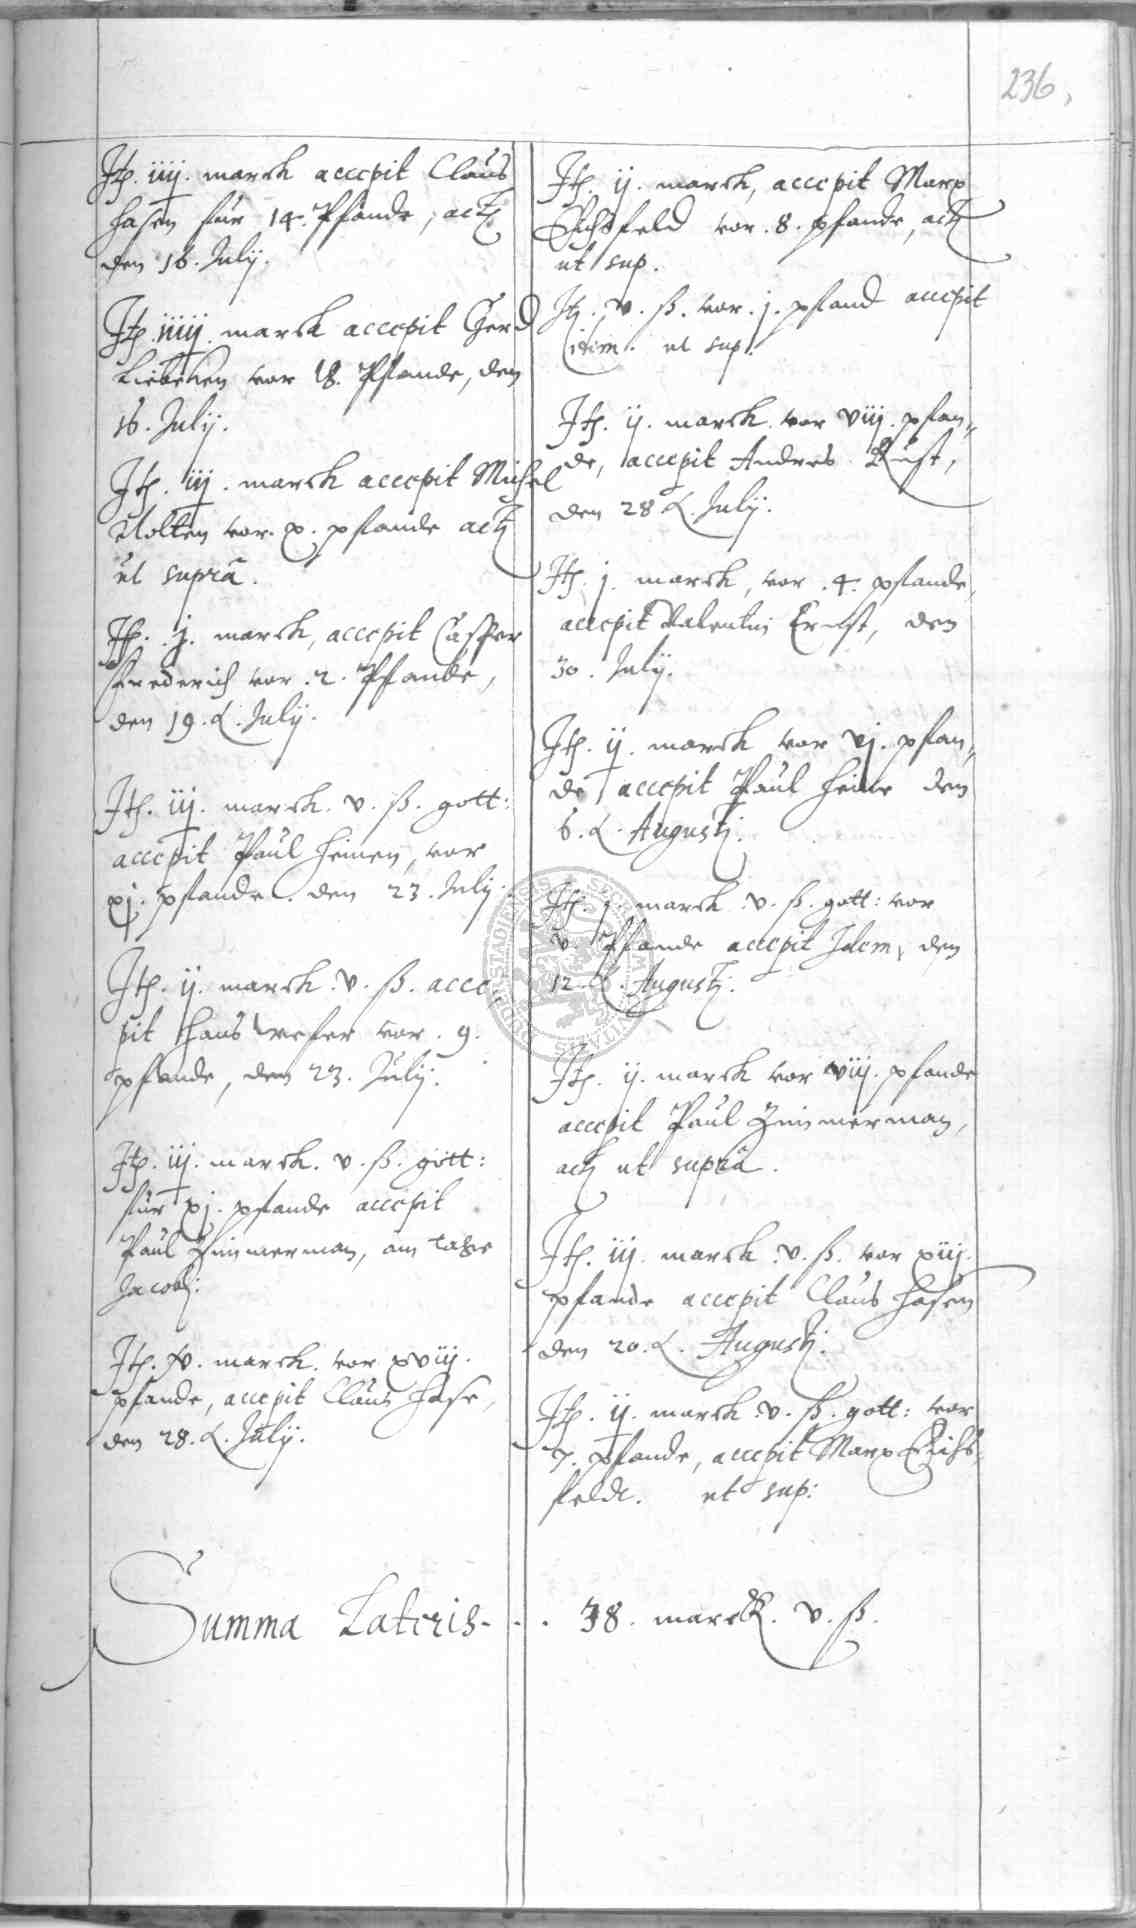 236,
Itē. iiij. marck accepit Claus
Hasen für 14. Pfande, actū
den 16. Julij.
Itē. iiiij. marck accepit Gerd
Liebehen vor 18. Pfande, den
16. Julij.
Itē. iij. marck accepit Michel
Nolten vor. x. pfande actū
ut supra.
Itē. j. marck, accepit Casper
Frederich vor. 2. Pfande,
den 19. d. Julij.
Itē. iij. marck. v. ß. gott:
accepit Paul Heinen, vor
xj. pfande. den 23. Julij.
Itē. ij. marck. v. ß. acce,
pit Hans wefer vor. 9.
pfande, den 23. Julij.
Itē. iij. marck. v. ß. gött:
für xj. pfande accepit
Paul Zimmerman, am tage
Jacobj:
Itē. iv. marck. vor xviij.
pfande, accepit Claus Hase,
den 28. d. Julij.
Itē. ij. marck, accepit Marx
Eichsfeld vor. 8. pfande, actū
ut sup.
Itē. v. ß. vor. j. pfand accepit
idem. ut sup.
Itē. ij. marck. vor viij. pfan,,
de, accepit Andres Rust,
den 28. d. Julij.
Itē. j. marck, vor. 4. pfande,
accepit Valentin Ernst, den
30. Julij.
Itē. ij. marck vor vj. pfan,,
de accepit Paul Heine den
6. d. Augustj.
Itē. j. marck. v. ß. gott: vor
v. Pfande accepit Idem, den
12. d. Augustj.
Itē. ij. marck vor viij. pfande
accepit Paul Zimmerman,
actū ut supra.
Itē. iij. marck. v. ß. vor xiij.
pfande accepit Claus Hasen
den 20. d. Augustj.
Itē. ij. marck. v. ß. gott: vor
7. Pfande, accepit Marx Eichs,
felde. ut sup:
Summa Lateris - . . 38. marck. v. ß.